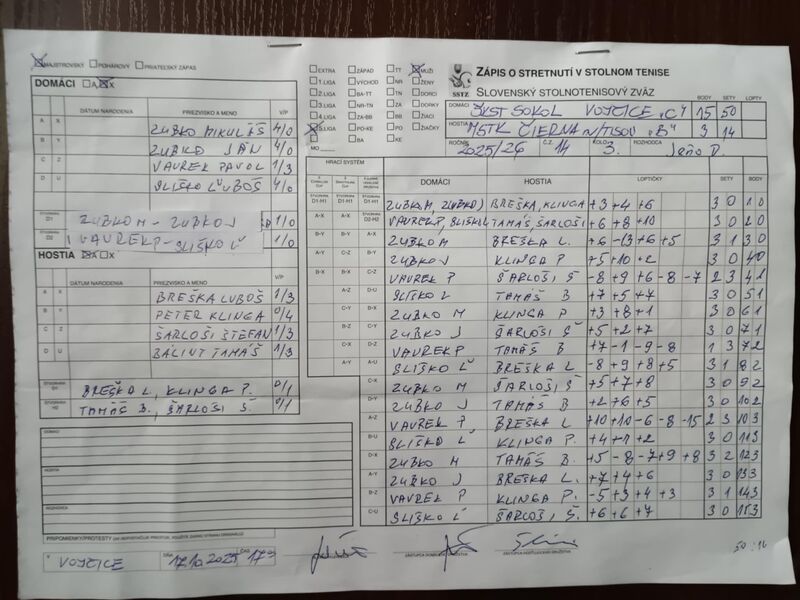 ☒ MAJSTROVSKÝ ☐ POHÁROVÝ ☐ PRIATEĽSKÝ ZÁPAS
DOMÁCI ☐ A ☒ X
DÁTUM NARODENIA PRIEZVISKO A MENO V/P
A X ZUBKO MIKULÁŠ 4/0
B Y ZUBKO JÁN 4/0
C Z VAUREK PAVOL 1/3
D U SLIŠKO ĽUBOŠ 4/0
ŠTVORHRA D1 ZUBKO M - ZUBKO J 1/0
D2 VAUREK P - SLIŠKO Ľ 1/0
HOSTIA ☒ A ☐ X
DÁTUM NARODENIA PRIEZVISKO A MENO V/P
A X BREŠKA LUBOŠ 1/3
B Y PETER KLINGA 0/4
C Z ŠARLOŠI ŠTEFAN 1/3
D U BALINT TAMÁŠ 1/3
ŠTVORHRA H1 BREŠKA L, KLINGA P. 0/1
ŠTVORHRA H2 TAMÁŠ B., ŠARLOŠI Š. 0/1
DOMÁCI
HOSTIA
ROZHODCA
PRIPOMIENKY/PROTESTY
V VOJČICE DŇA 17.10.2025 ČAS 17
☐ EXTRA ☐ ZÁPAD ☐ TT ☒ MUŽI
☐ 1.LIGA ☐ VÝCHOD ☐ NR ☐ ŽENY
☐ 2.LIGA ☐ BA-TT ☐ TN ☐ DORCI
☐ 3.LIGA ☐ NR-TN ☐ ZA ☐ DORKY
☐ 4.LIGA ☐ ZA-BB ☐ BB ☐ ŽIACI
☒ 5.LIGA ☐ PO-KE ☐ PO ☐ ŽIAČKY
☐ BA ☐ KE
MO
SSTZ
ZÁPIS O STRETNUTÍ V STOLNOM TENISE
SLOVENSKÝ STOLNOTENISOVÝ ZVÄZ
BODY SETY LOPTY
DOMÁCI ŠKST SOKOL VOJČICE "C" 15 50
HOSTIA MSTK ČIERNA n/TISOU "B" 3 14
ROČNÍK 2025/26 Č.Z. 14 KOLO 3. ROZHODCA
HRACÍ SYSTÉM
DOMÁCI HOSTIA LOPTIČKY SETY BODY
ŠTVORHRA D1-H1 ZUBKO M, ZUBKO J BREŠKA, KLINGA +3 +4 +6 3 0 1 0
A-X ŠTVORHRA D2-H2 VAUREK P, SLIŠKO Ľ TAMÁŠ, ŠARLOŠI +6 +8 +10 3 0 2 0
B-Y B-Y A-X ZUBKO M BREŠKA L. +6 -13 +6 +5 3 1 3 0
A-Y C-Z B-Y ZUBKO J KLINGA P +5 +10 +2 3 0 4 0
B-X B-X C-Z VAUREK P ŠARLOŠI Š -8 +9 +6 -8 -7 2 3 4 1
A-Z D-U SLIŠKO Ľ TAMÁŠ B +7 +5 +7 3 0 5 1
C-Y B-X ZUBKO M KLINGA P +3 +8 +1 3 0 6 1
B-Z C-Y ZUBKO J ŠARLOŠI Š +5 +2 +7 3 0 7 1
C-X D-Z VAUREK P TAMÁŠ B +7 -1 -9 -8 1 3 7 2
A-Y A-U SLIŠKO Ľ BREŠKA L -8 +9 +8 +5 3 1 8 2
C-X ZUBKO M ŠARLOŠI Š +5 +7 +8 3 0 9 2
D-Y ZUBKO J TAMÁŠ B +2 +6 +5 3 0 10 2
A-Z VAUREK P BREŠKA L +10 +10 -6 -8 -15 2 3 10 3
B-U SLIŠKO Ľ KLINGA P. +4 +1 +2 3 0 11 3
D-X ZUBKO M TAMÁŠ B. +5 -8 -7 +9 +8 3 2 12 3
A-Y ZUBKO J BREŠKA L. +7 +4 +6 3 0 13 3
B-Z VAUREK P KLINGA P. -5 +3 +4 +3 3 1 14 3
C-U SLIŠKO Ľ ŠARLOŠI, Š. +6 +6 +7 3 0 15 3